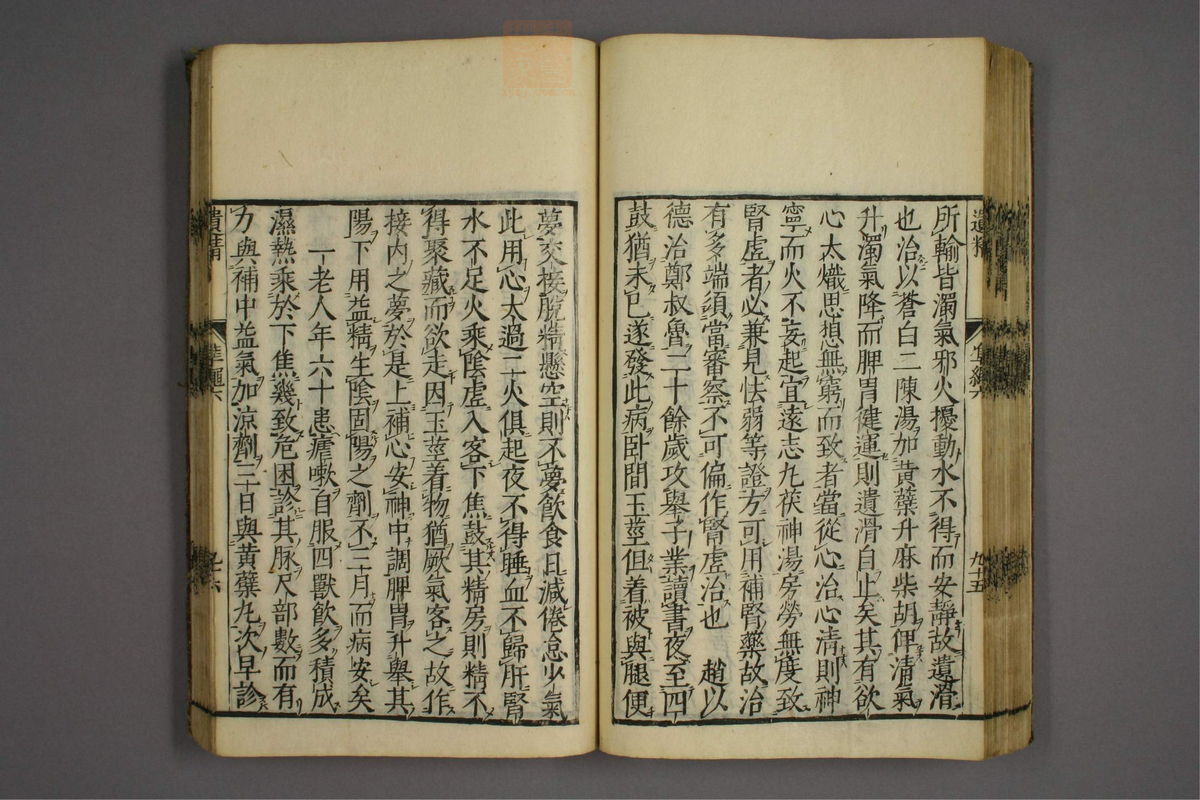 所輸皆濁氣邪火擾動水不得而安靜故遺滑
也治以蒼白二陳湯加黃蘗升麻柴胡俾清氣
升濁氣降而脾胃健運則遺滑自止矣其有欲
心太熾思想無窮而致者當從心治心清則神
寧而火不妄起宜遠志丸茯神湯房勞無度致
腎虛者必兼見怯弱等證方可用補腎藥故治
有多端須當審察不可偏作腎虛治也　趙以
德治鄭叔魯二十餘歲攻舉子業讀書夜至四
鼓猶未已遂發此病卧間玉莖但着被與腿便
夢交接脫精懸空則不夢飲食日減倦怠少氣
此用心太過二火俱起夜不得睡血不歸肝腎
水不足火乘陰虛入客下焦鼓其精房則精不
得聚藏而欲走因玉莖着物猶厥氣客之故作
接內之夢於是上補心安神中調脾胃升舉其
陽下用益精生陰固陽之劑不三月而病安矣
一老人年六十患瘧嗽自服四獸飲多積成
濕熱乘於下焦幾致危困診其脉尺部數而有
力與補中益氣加涼劑三日與黃蘗丸次早診
遺精
九十五
遺精
九十六